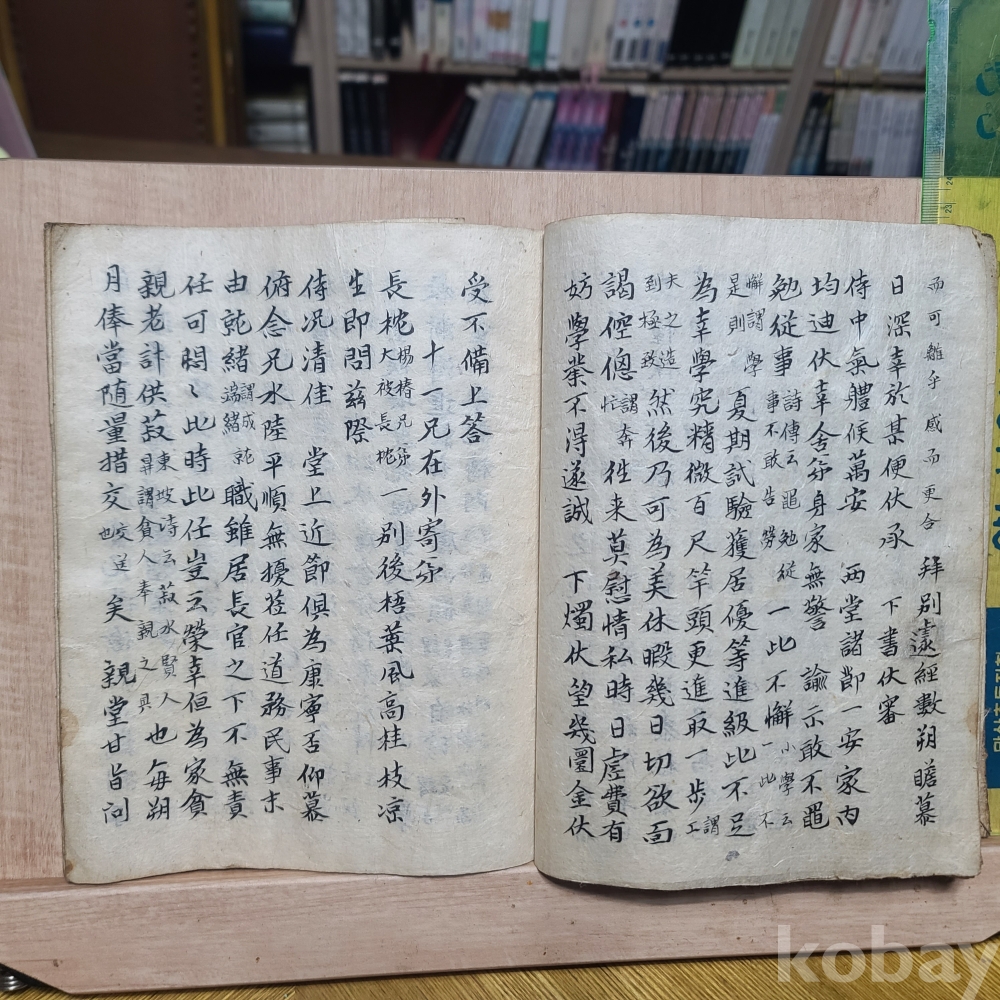 而可離乎感而更合 拜別遽經數朔瞻慕
日深幸於某便伏承 下書伏審
侍中氣體候萬安 兩堂諸節一安家內
均迪伏幸舍弟身家無警 諭示敢不黽
勉從事 詩傳云黽勉從事不敢告勞 一此不懈 小學云一此不
懈謂學是則 夏期試驗獲居優等進級此不足
為幸學究精微百尺竿頭更進取一步 謂工
夫之造到極致 然後乃可為美休暇幾日切欲面
謁倥傯 謂奔忙 往來莫慰情私時日虛費有
妨學業不得遂誠 下燭伏望幾圜金伏
受不備上答
四十一兄在外寄弟
長枕 楊椿兄弟大被長枕 一別後梧葉風高桂枝凉
生即問玆際
侍况清佳 堂上近節俱為康寧否仰慕
俯念兄水陸平順無擾莅任道務民事未
由就緒 謂成就端緒 職雖居長官之下不無責
任可悶〻此時此任豈云榮幸但為家貧
親老計供菽 東坡詩云菽水賢人昇謂貧人奉親之具 也每朔
月俸當隨量措交 交送也 矣 親堂甘旨問
kobay